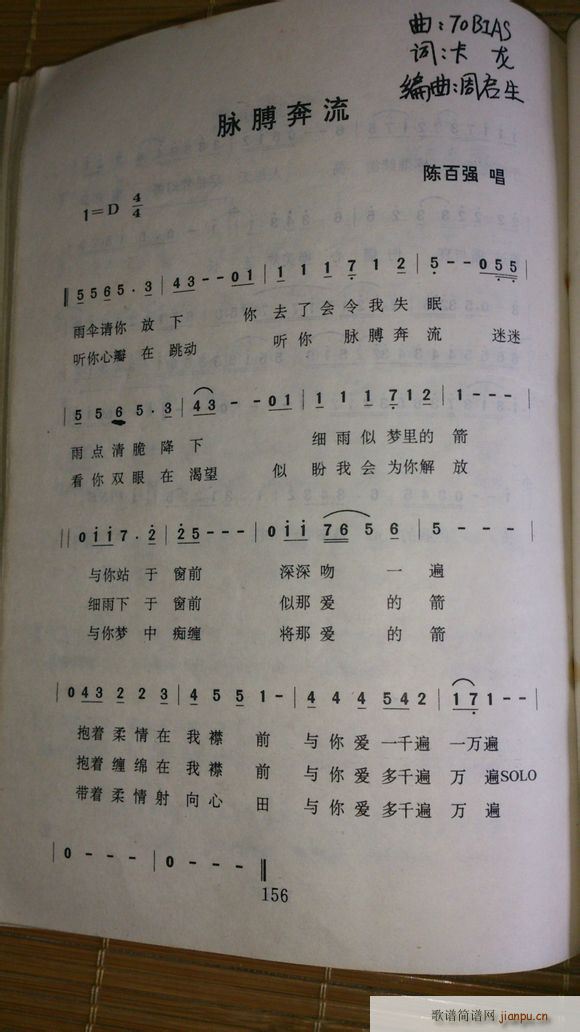 曲:TOBIAS
词:卡龙
编曲:周启生
脉膊奔流
陈百强 唱
1=D 4/4
‖5565·3|43--01|111712|5·--055|
雨伞请你 放下 你 去了会令我失 眠
听你心瓣 在 跳动 听你 脉膊奔流 迷迷
|5565·3|43--01|111712|1---|
雨点清脆降下 细雨似梦里的 箭
看你双眼在渴望 似 盼我会为你解 放
‖0117·2|25---|011 7656|5---|
与你站 于 窗前 深深吻 一 遍
细雨下 于 窗前 似那爱 的 箭
与你梦 中 痴缠 将那爱 的 箭
|043223|4551-|444542|171--|
抱着柔情在我襟 前 与你爱一千遍 一万遍
抱着缠绵在我襟 前 与你爱多千遍 万 遍SOLO
带着柔情射向心 田 与你爱多千遍 万 遍
|0---|0---‖
156
歌谱简谱网 jianpu.cn